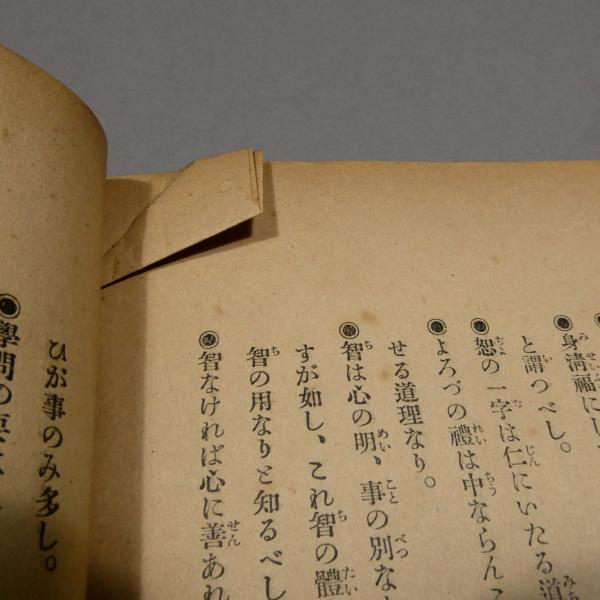 身淸福にし
と謂つべし。
◉恕の一字は仁にいたる道
◉よろづの禮は中ならんこ
せる道理なり。
◉智は心の明、事の別な
すが如し、これ智の體
智の用なりと知るべし
◉智なければ心に善あれ
ひが事のみ多し。
◉學問の